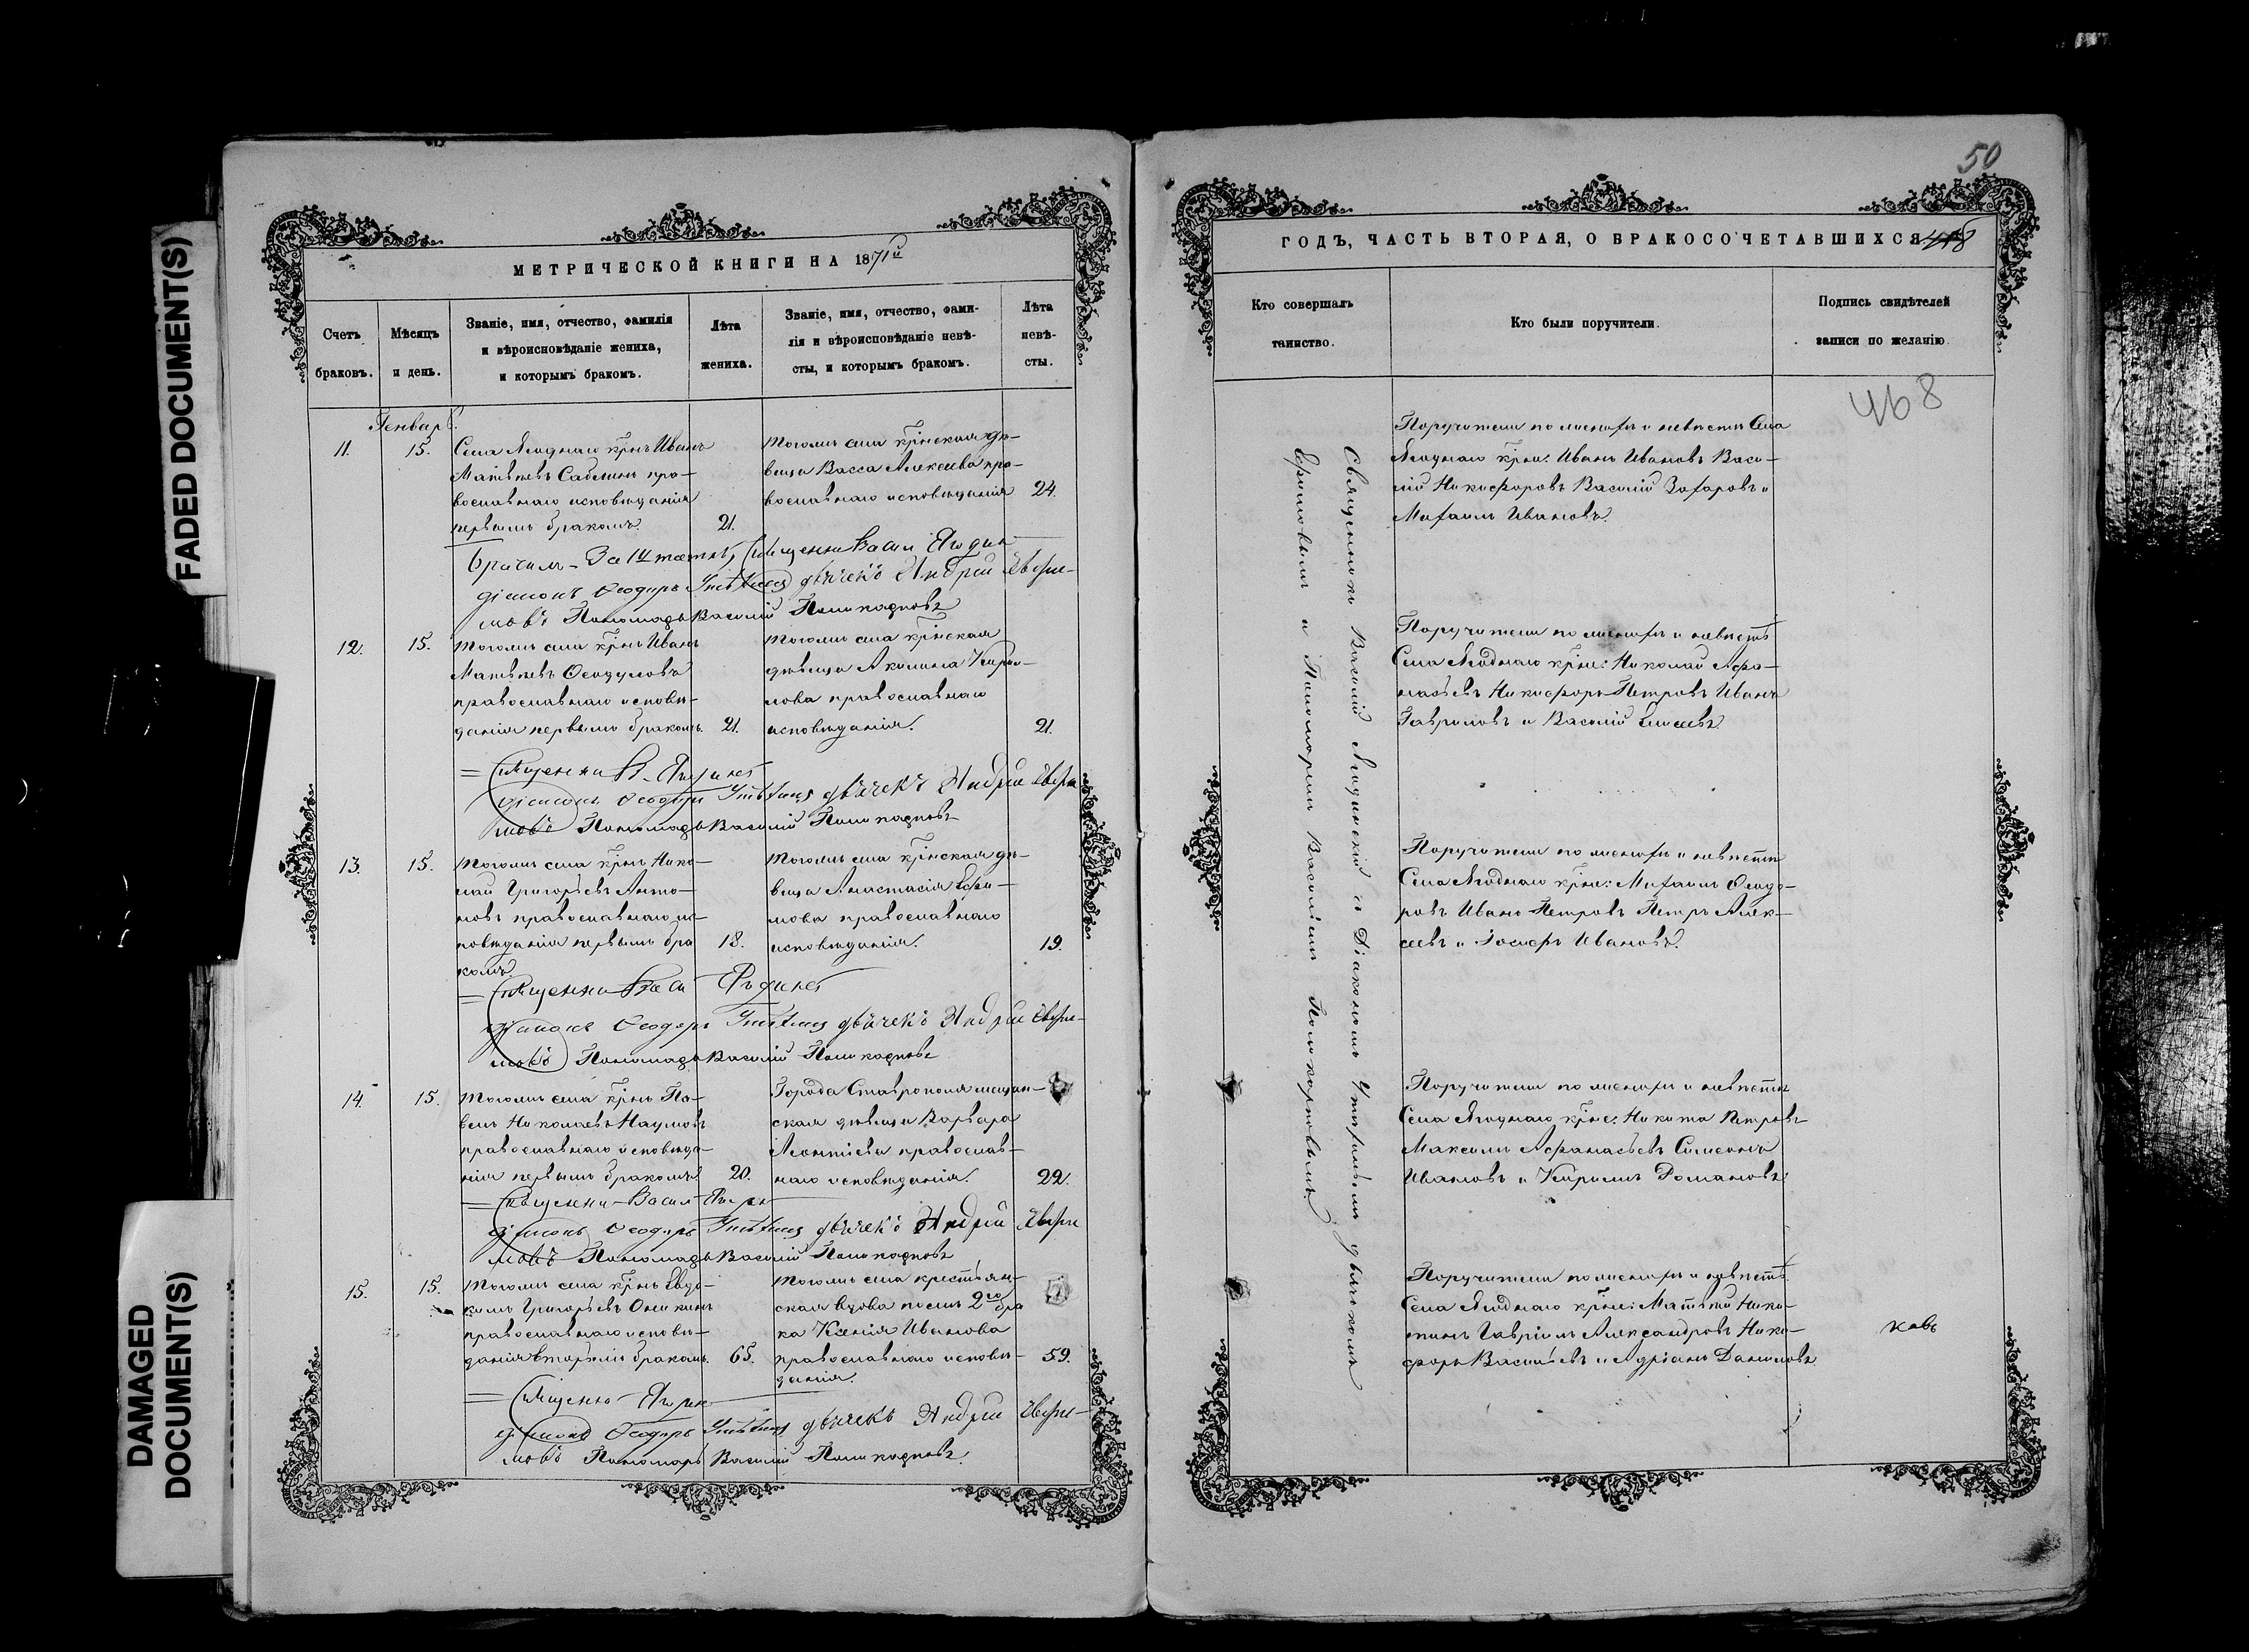 FADED DOCUMENT(S)
DAMAGED
DOCUMENT(S)
МЕТРИЧЕСКОЙ КНИГИ НА 1871й
Счетъ
браковъ.
Мѣсяцъ
и день.
Званіе, имя, отчество, фамилія
и вѣроисповѣданіе жениха,
и которымъ бракомъ.
Лѣта
жениха.
Званіе, имя, отчество, фами-
лія и вѣроисповѣданіе невѣ-
сты, и которымъ бракомъ.
Лѣта
невѣ-
сты.
Генварь.
11.
15.
Села Ягоднаго крнъ Иванъ
Матвѣевъ Саблинъ пра-
вославнаго исповѣданія
первымъ бракомъ.
21.
Тогожъ села крнская дѣ-
вица Васса Алексѣева пра-
вославнаго исповѣданія
24.
діаконъ Ѳеодоръ дьячекъ Андрей Ефри-
мовъ Пономарь Василій Поликарповъ
12.
15.
Тогожъ села крнъ Иванъ
Матвѣевъ Ѳеодуловъ
православнаго исповѣ-
данія первымъ бракомъ.
21.
Тогожъ села крнская
дѣвица Акилина Кирил-
лова православнаго
исповѣданія.
21.
діаконъ Ѳеодоръ дьячекъ Андрей Ефри
мовъ Пономарь Василій Поликарповъ
13.
15.
Тогожъ села крнъ Нико-
лай Григорьевъ Анто-
новъ православнаго ис-
повѣданія первымъ бра
комъ.
18.
Тогожъ села крнская дѣ-
вица Анастасія Ефи-
мова православнаго
исповѣданія.
19.
діаконъ Ѳеодоръ дьячекъ Андрей Ефри-
мовъ Пономарь Василій Поликарповъ
14.
15.
Тогожъ села крнъ Па-
велъ Николаевъ Наумовъ
православнаго исповѣда-
нія первымъ бракомъ.
20.
Города Ставрополя мѣщан-
ская дѣвица Варвара
Леонтіева православ-
наго исповѣданія.
22.
діаконъ Ѳеодоръ дьячекъ Андрей Ефри
мовъ Пономарь Василій Поликарповъ
15.
15.
Тогожъ села крнъ Евдо-
кимъ Григорьевъ Оникинъ
православнаго исповѣ-
данія вторымъ бракомъ.
65.
Тогожъ села крестьян-
ская вдова послѣ 2го бра
ка Ксенія Иванова
православнаго исповѣ-
данія.
59.
діаконъ Ѳеодоръ дьячекъ Андрей Ефри-
мовъ Пономарь Василій Поликарповъ.
50
ГОДЪ, ЧАСТЬ ВТОРАЯ, О БРАКОСОЧЕТАВШИХСЯ
Кто совершалъ
таинство.
Кто были поручители.
Подпись свидѣтелей
записи по желанію.
468
Священникъ Василій Ягодинскій съ Діакономъ дьячкомъ
Ефримовымъ и Пономаремъ Василіемъ Поликарповымъ.
Поручители по женихѣ и невѣстѣ Села
Ягоднаго крне: Иванъ Ивановъ Васи-
лій Никифоровъ Василій Захаровъ и
Михаилъ Ивановъ.
Поручители по женихѣ и невѣстѣ
Села Ягоднаго крне: Николай Афа-
насьевъ Никифоръ Петровъ Иванъ
Гавриловъ и Василій Елисеевъ.
Поручители по женихѣ и невѣстѣ
Села Ягоднаго крне: Михаилъ Ѳеодо-
ровъ Иванъ Петровъ Петръ Алек-
сеевъ и Іосифъ Ивановъ.
Поручители по женихѣ и невѣстѣ
Села Ягоднаго крне: Никита Петровъ
Максимъ Афанасьевъ Симеонъ
Ивановъ и Кириллъ Романовъ.
Поручители по женихѣ и невѣстѣ.
Села Ягоднаго крне: Матвѣй Ники-
тинъ Гавріилъ Александровъ Ники-
форъ Васильевъ и Адріанъ Даниловъ.